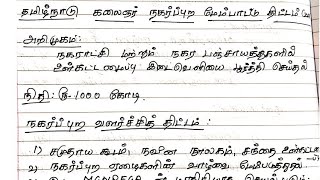 தமிழ்நாடு கலைஞர் நகர்ப்புற மேம்பாட்டு திட்டம்
அறிமுகம்:
நகராட்சி மற்றும் நகர பஞ்சாயத்துகளில்
உள்கட்டமைப்பு இடைவெளியை பூர்த்தி செய்தல்
நிதி: ரூ.1000 கோடி.
நகர்ப்புற வளர்ச்சித் திட்டம்:
1) சமுதாய கூடம், நவீன நூலகம், சந்தை
2) நகர்ப்புற ஏழைகளின் வாழ்வை மேம்படுத்தல்